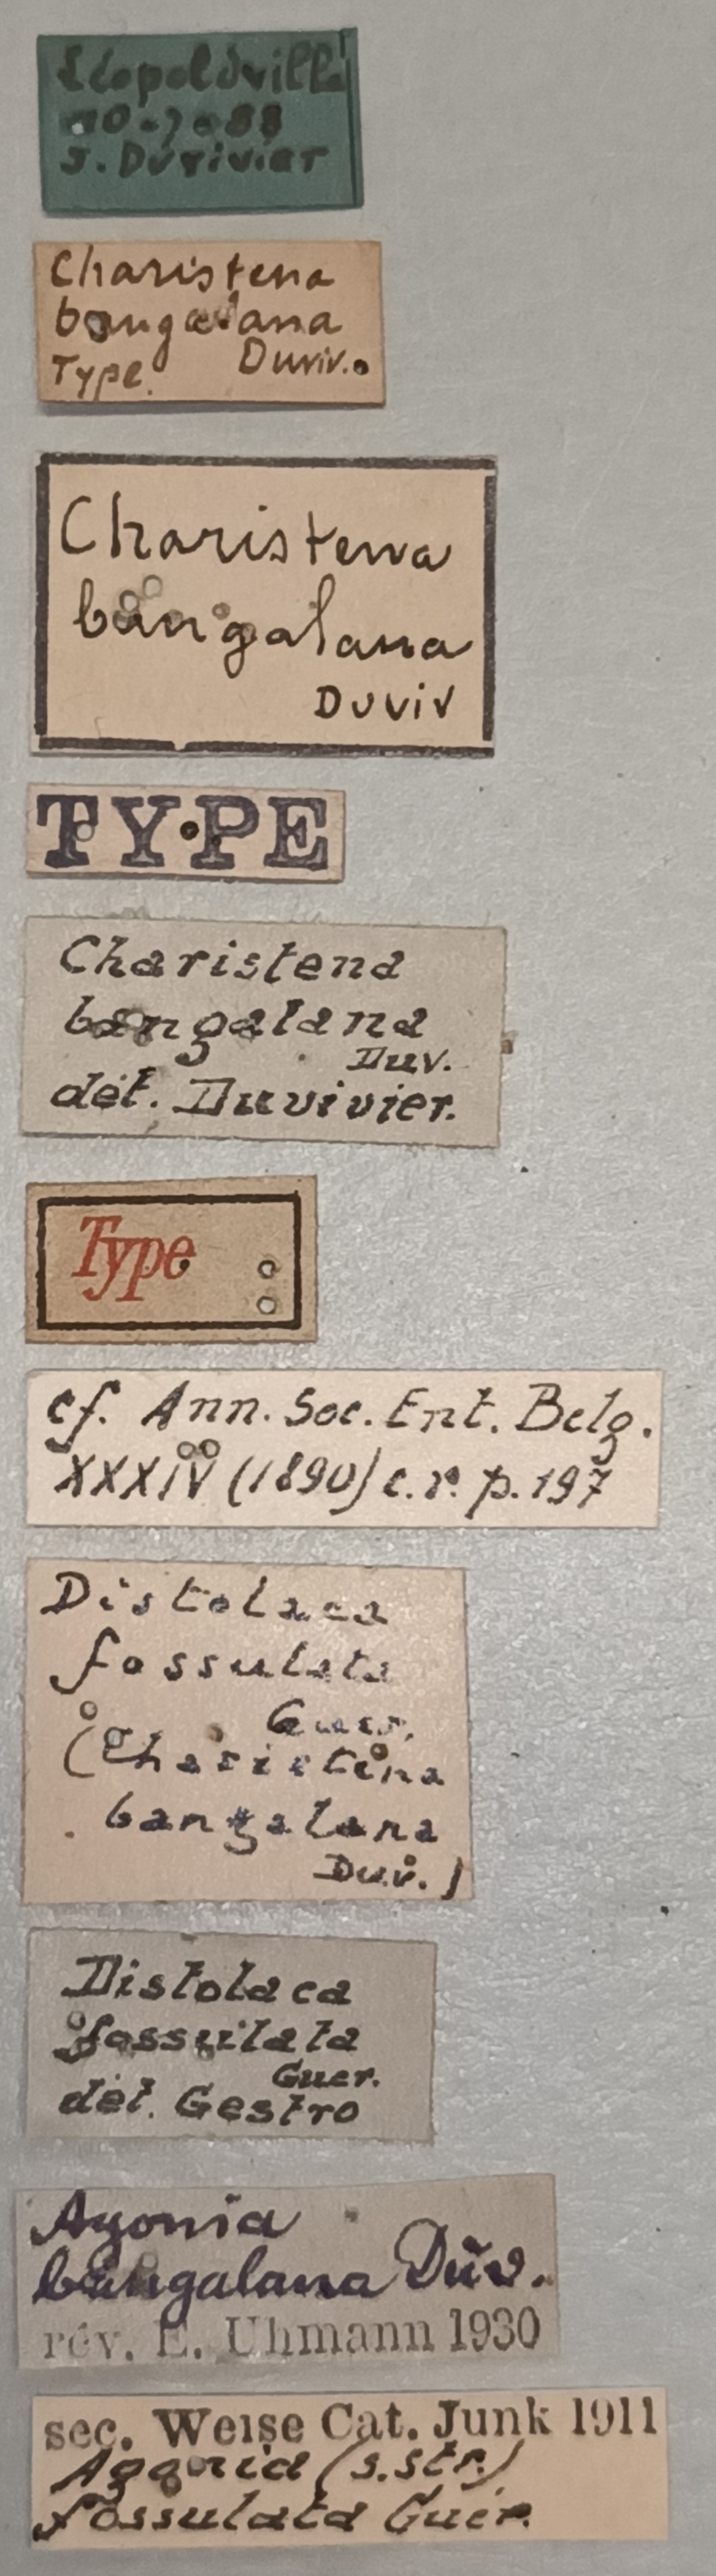 Léopoldville
10-7-88
J. Duvivier
Charistena
bangalana
Type. Duviv.
Charistena
bangalana
Duviv
TYPE
Charistena
bangalana
Duv.
dét. Duvivier.
Type
cf. Ann. Soc. Ent. Belg.
XXXIV (1890) c.r. p. 197
Distolaca
fossulata
Guer.
(Charistena
bangalana
Duv.)
Distolaca
fossulata
Guer.
dét. Gestro
Agonia
bangalana Duv.
rév. E. Uhmann 1930
sec. Weise Cat. Junk 1911
Agonia (s.str.)
fossulata Guér.